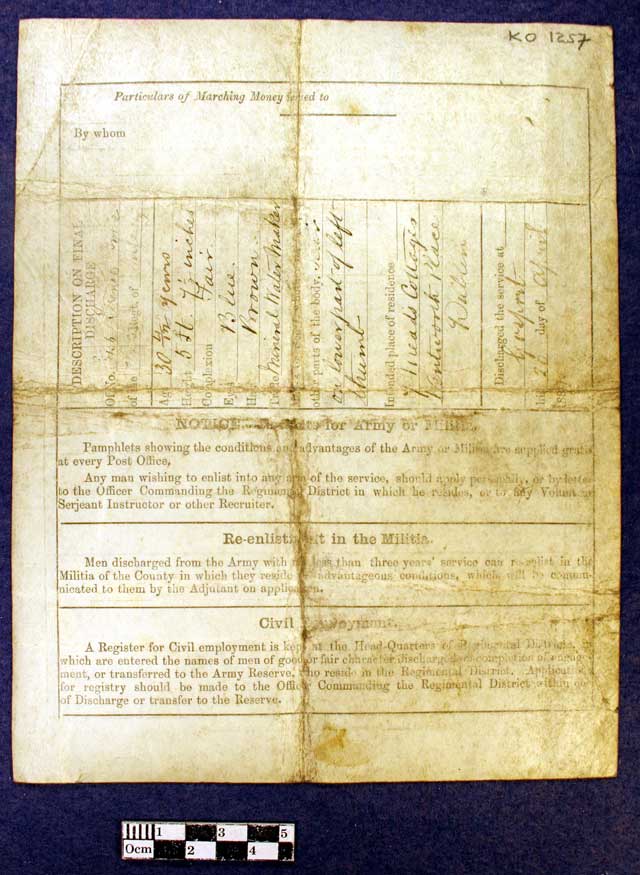 KO 1257
Particulars of Marching Money issued to
By whom
DESCRIPTION ON FINAL
DISCHARGE
of the Regt of
Age 30 4/12 years
Height 5 ft 7½ inches
Complexion Fair
Eyes Blue.
Hair Brown.
Trade Mineral Water Maker
other parts of the body,
on lower part of left
thumb
Intended place of residence
7 Cottages
Wentworth Place
Dublin
Discharged the service at
Gosport
this day of April
188
NOTICE. for Army or Militia.
Pamphlets showing the conditions and advantages of the Army or Militia are supplied gratis
at every Post Office,
Any man wishing to enlist into any arm of the service, should apply personally, or by letter
to the Officer Commanding the Regimental District in which he resides, or to any Volunteer
Serjeant Instructor or other Recruiter.
Re-enlistment in the Militia.
Men discharged from the Army with not less than three years' service can re-enlist in the
Militia of the County in which they reside on advantageous conditions, which will be commu-
nicated to them by the Adjutant on application.
Civil Employment.
A Register for Civil employment is kept at the Head-Quarters of Regimental Districts, in
which are entered the names of men of good or fair character discharged on completion of engage-
ment, or transferred to the Army Reserve, who reside in the Regimental District. Applications
for registry should be made to the Officer Commanding the Regimental District within
of Discharge or transfer to the Reserve.
1 3 5
0cm 2 4